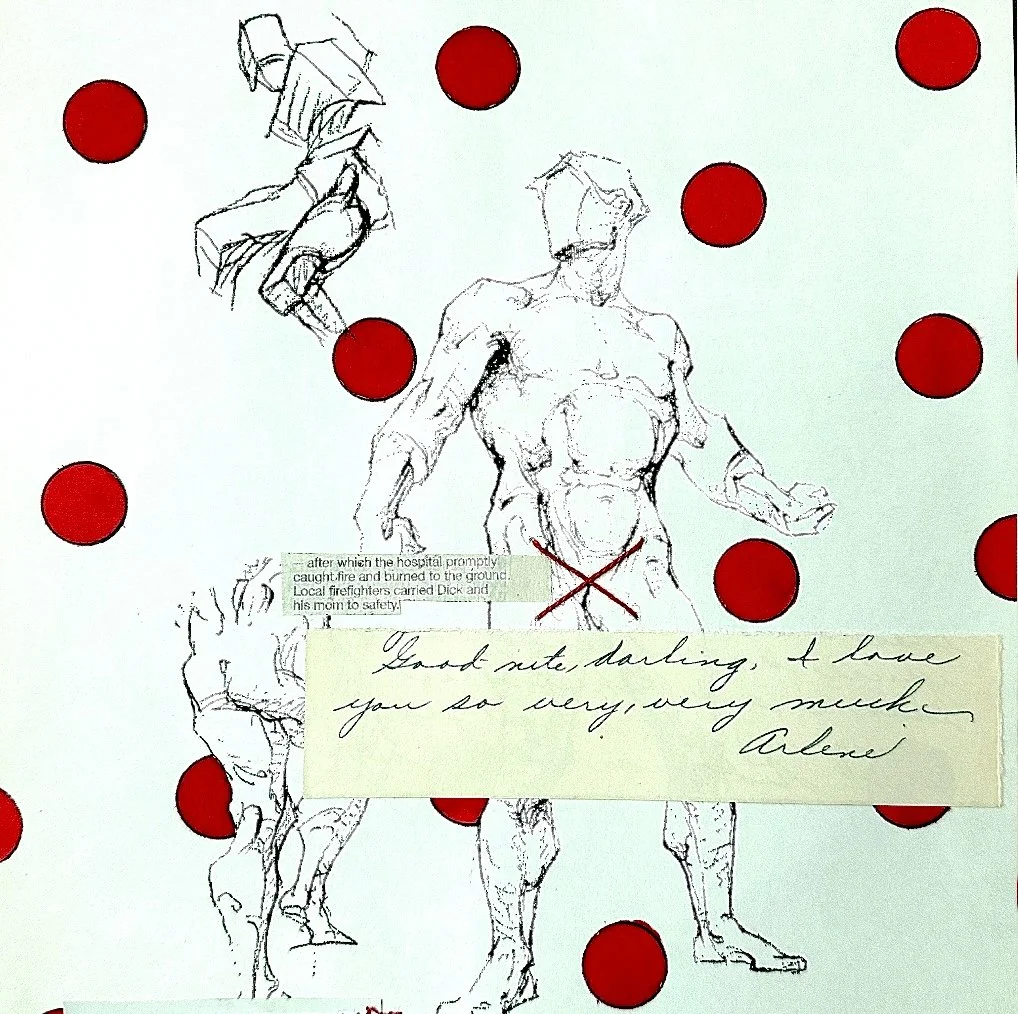 — after which the hospital promptly
caught fire and burned to the ground.
Local firefighters carried Dick and
his mom to safety.
Good nite, darling. I love
you so very, very much
Arlene